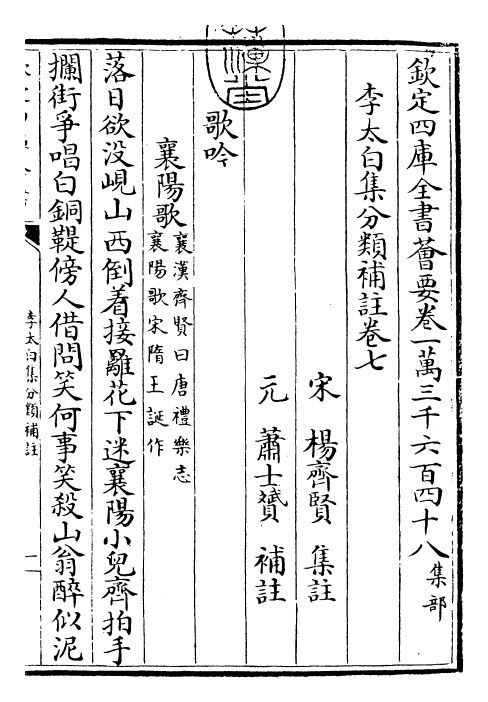 欽定四庫全書薈要卷一萬三千六百四十八集部
李太白集分類補註卷七
宋 楊齊賢 集註
元 蕭士贇 補註
歌吟
襄陽歌
襄漢齊賢曰唐禮樂志
襄陽歌宋隋王誕作
落日欲没峴山西倒着接䍦花下迷襄陽小兒齊拍手
攔街爭唱白銅鞮傍人借問笑何事笑殺山翁醉似泥
李太白集分類補註
一